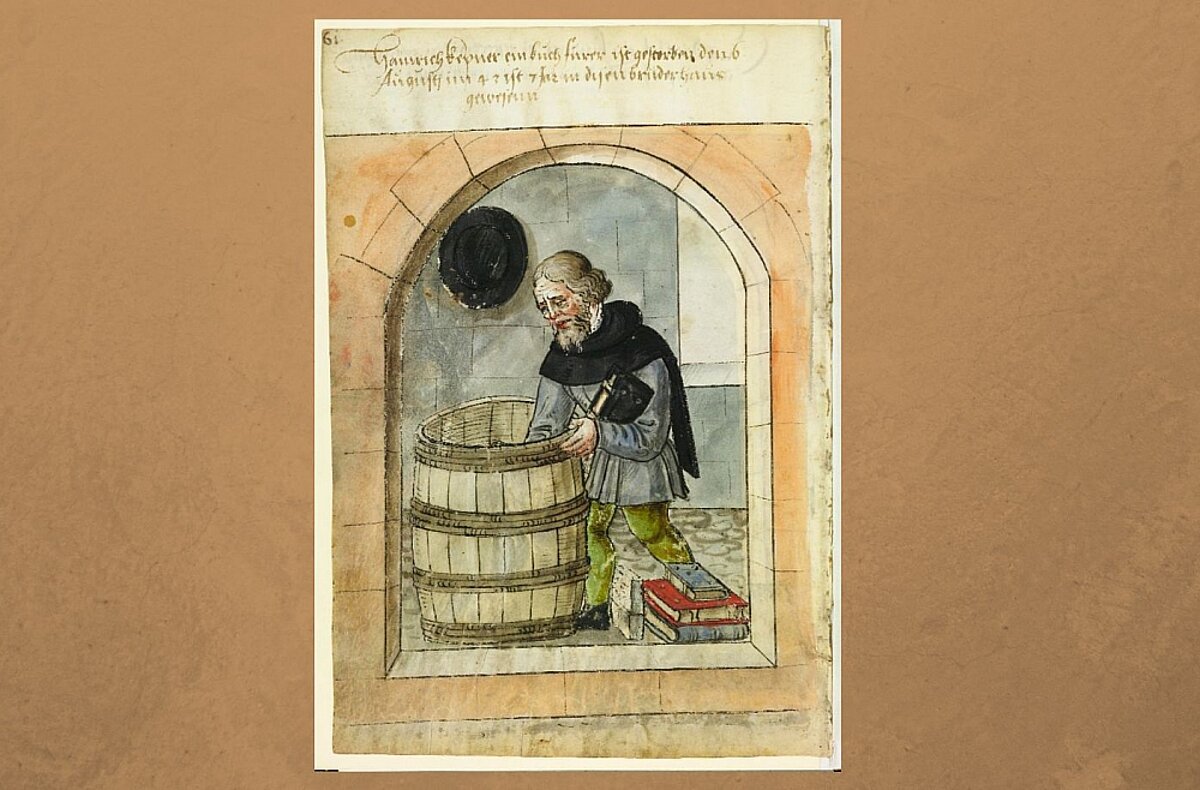 61.
Hainrich kepner ein buch furer ist gestorben den 6
Augusti im 42 ist 7 Jar in disen bruderhaus
gewesenn